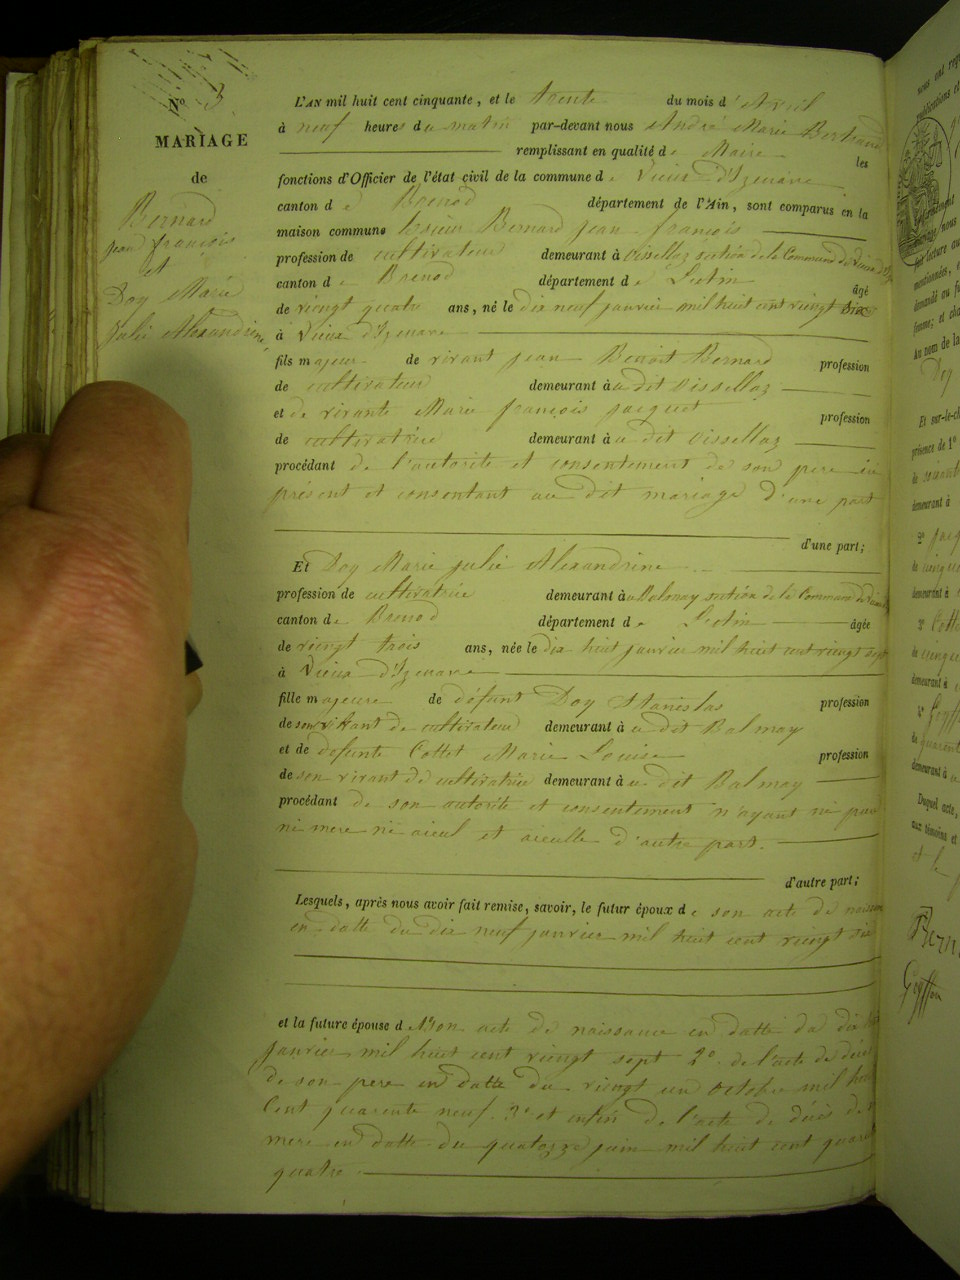 N° 3
MARIAGE
de
Bernard
jean françois
et
Doy Marie
Julie Alexandrine
L'AN mil huit cent cinquante, et le trente du mois d'Avril
à neuf heures du matin par-devant nous André Marie Bertrand
remplissant en qualité de Maire les
fonctions d'Officier de l'état civil de la commune de Vieux d'Izenave
canton de Brenod département de l'Ain, sont comparus en la
maison commune le sieur Bernard jean françois
profession de cultivateur demeurant à Vissellaz section de la Commune de Vieux d'Iz
canton de Brenod département de L'ain âgé
de vieingt quatre ans, né le dix neuf janvier mil huit cent vieingt six
à Vieux d'Izenave
fils majeur de vivant jean Benoit Bernard profession
de cultivateur demeurant à u dit Vissellaz
et de vivante Marie françois jacquet profession
de cultivatrice demeurant à u dit Vissellaz
procédant de l'autorite et consentement de son pere ici
présent et consentant au dit mariage d'une part
d'une part;
Et Doy Marie julie Alexandrine
profession de cultivatrice demeurant à u Balmay section de la Commune de Vieux
canton de Brenod département de L'ain âgée
de vieingt trois ans, née le dix huit janvier mil huit cent vieingt sept
à Vieux d'Izenave
fille majeure de défunt Doy Stanislas profession
de son vivant de cultivateur demeurant à u dit Balmay
et de defunte Cottet Marie Louise profession
de son vivant de cultivatrice demeurant à u dit Balmay
procédant de son autorite et consentement n'ayant ni pere
ni mere ni aieul et aieulle d'autre part.
d'autre part;
Lesquels, après nous avoir fait remise, savoir, le futur époux de son acte de naissan
en datte du dix neuf janvier mil huit cent vieingt six
et la future épouse d 1° son acte de naissance en datte du dix huit
janvier mil huit cent vieingt sept 2° de l'acte de déces
de son pere en datte du vieingt un octobre mil huit
Cent quarente neuf. 3° et enfin de l'acte de décis de s
mere en datte du quatorze juin mil huit cent quarat
quatre.